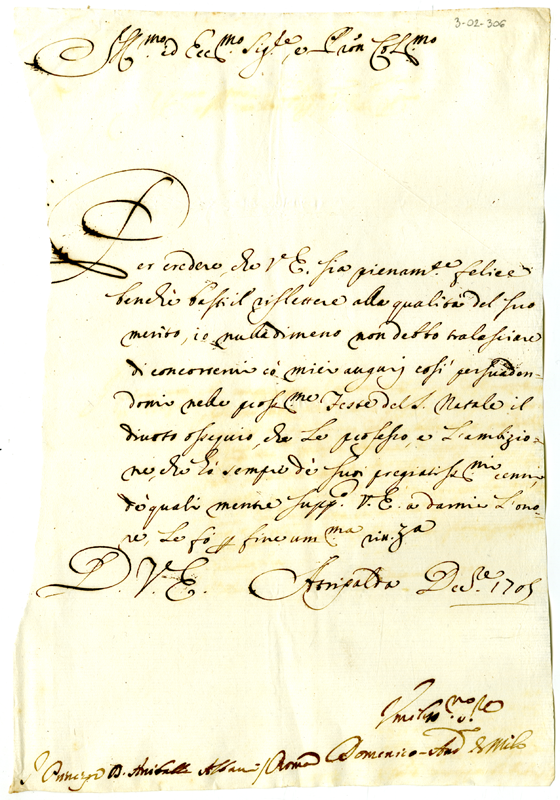 3-02-306
Ill.mo ed Ecc.mo Sig.re, e P'ron Col.mo
Per credere, che V. E. sia pienam.te felice
benchè basti il riflettere alla qualità del suo
merito, io nulladimeno non debbo tralasciare
di concorrervi có miei augurj così persuaden-
domi nelle pross.me Feste del S. Natale il
divoto ossequio, che Le professo, e l'ambizio-
ne, che hò sempre dè suoi pregiatiss.mi cenni
dè quali mentre supp.co V. E. a darmi l'ono-
re, Le fò p fine um.ma riv.za
D. V. E. Atripalda Dec.re 1705
Umiliss.mo
Domenico And. di Milo
S. Principe D. Anibale Albani / Roma